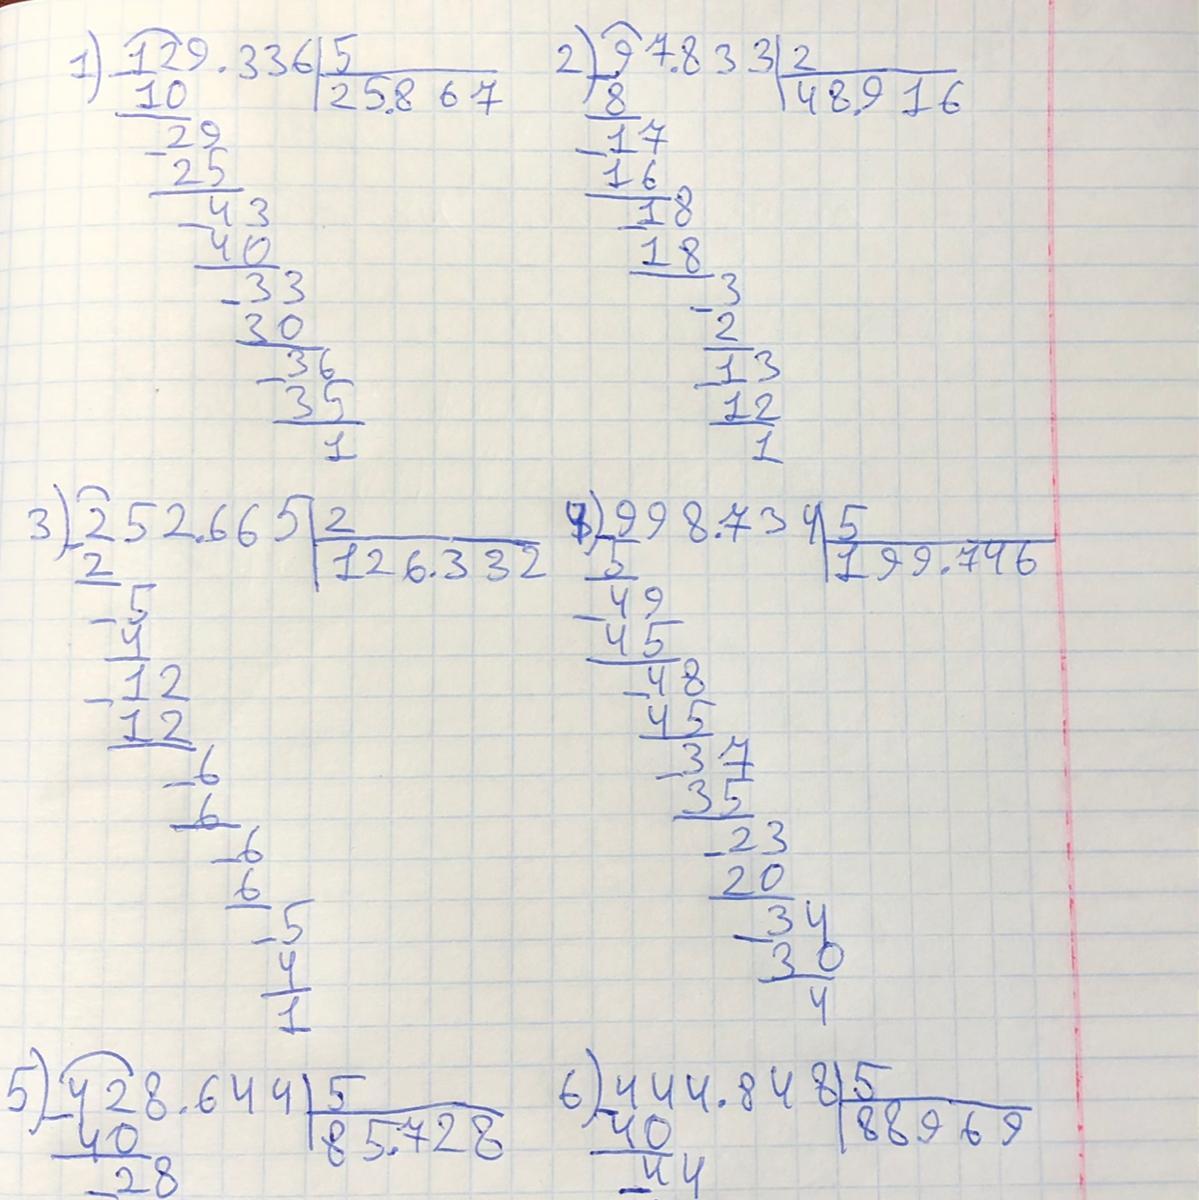 1) 129.336 5
10 25.867
29
25
43
40
33
30
36
35
1
2) 97.833 2
8 48.916
17
16
18
18
3
2
13
12
1
3) 252.665 2
2 126.332
5
4
12
12
6
6
6
6
5
4
1
4) 998.734 5
5 199.746
49
45
48
45
37
35
23
20
34
30
4
5) 428.644 5
40 85.728
28
6) 444.848 5
40 88969
44